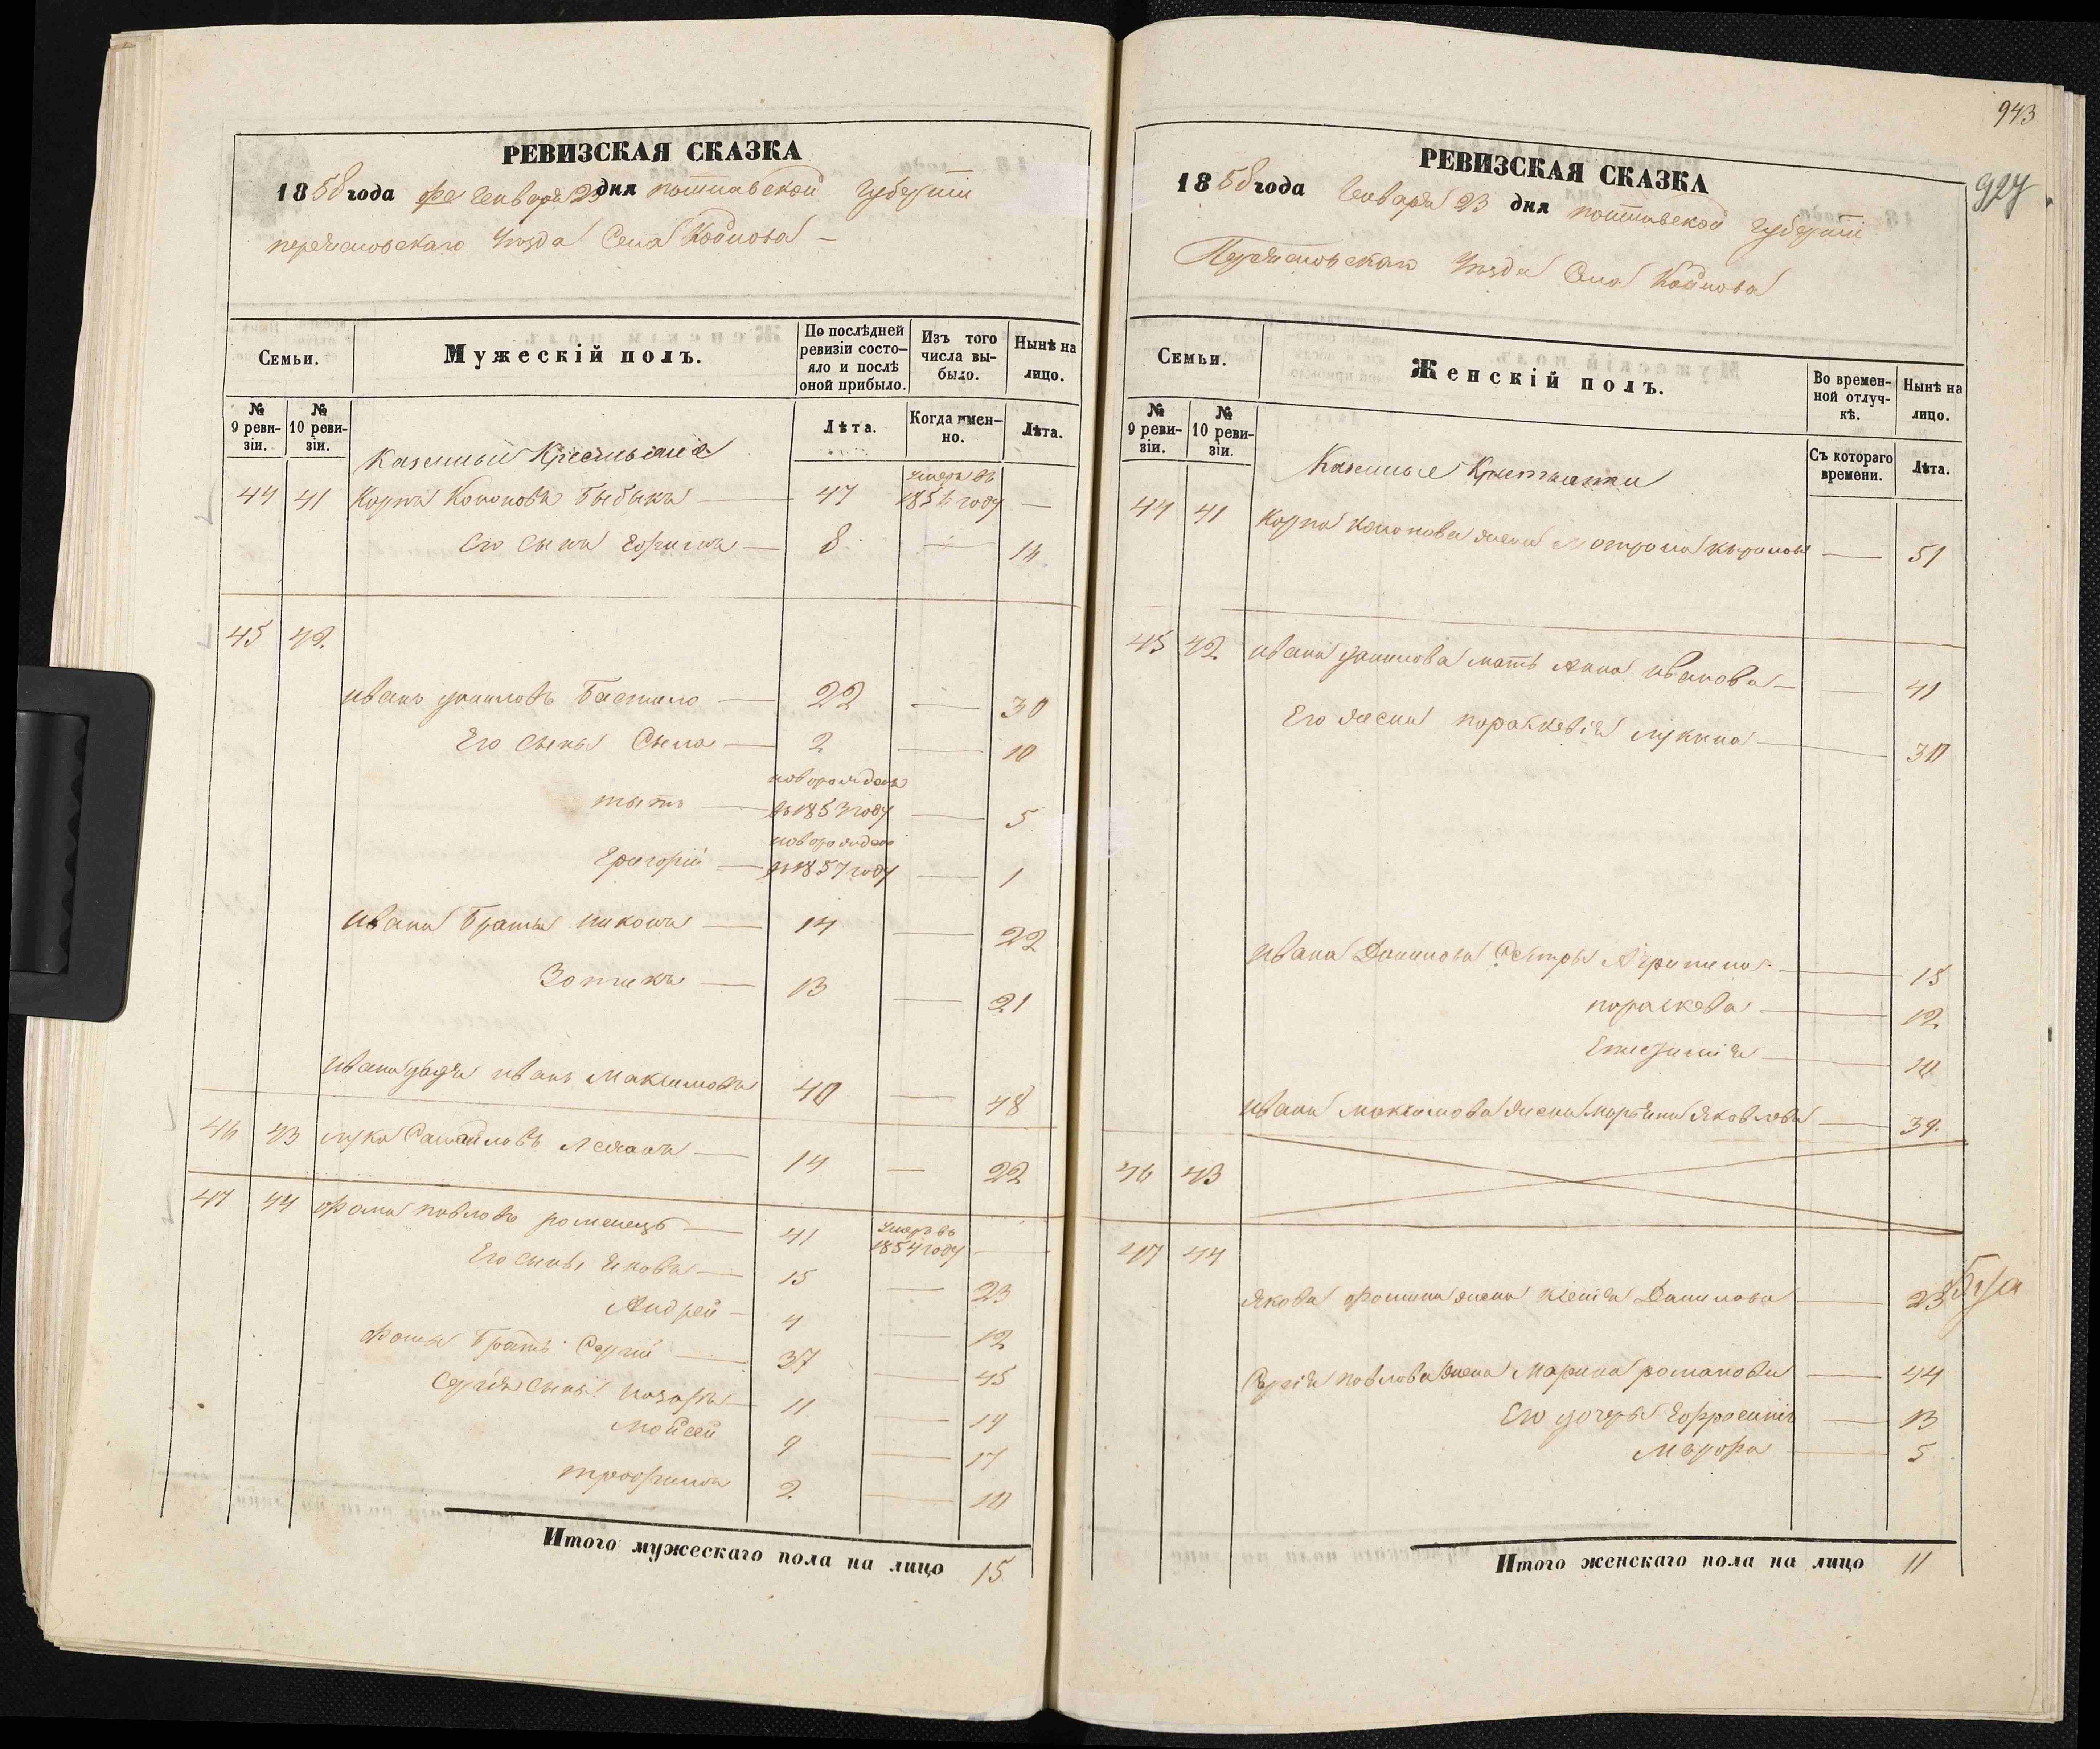 РЕВИЗСКАЯ СКАЗКА
1858 года Генваря 23 дня полтавской Губернiи
переяславскаго Уѣзда Села Койлова
Семьи. Мужескiй полъ. По послѣдней ревизiи состояло и послѣ оной прибыло. Изъ того числа выбыло. Нынѣ на лицо.
№ 9 ревизiи. № 10 ревизiи. Лѣта. Когда именно. Лѣта.
Казенныи Крестьяне
44 41 Карпъ Кононовъ 47 умеръ въ 185 году —
Его сынъ Ефимъ — 8 —
45 42.
иванъ даниловъ — 22 — 30
Его сыны Сыла — 2 — 10
титъ — новорожденъ въ 1853 году — 5
Григорiй — новорожденъ въ 1857 году — 1
ивана Братья никонъ — 14 — 22
Зотикъ — 13 — 21
ивана дядя иванъ Максимовъ 40 — 48
46 43 лука Самойловъ — 14 — 22
47 44 фома павловъ роменецъ — 41 умеръ въ 1854 году —
Его сыны Яковъ — 15 — 23
Андрей — 4 — 12
фомы Братъ Сергiй — 37 — 45
Сергiя сыны назаръ — 11 — 19
Мойсей 9 — 17
трофимъ 2 — 10
Итого мужескаго пола на лицо 15
943
927
РЕВИЗСКАЯ СКАЗКА
1858 года Генваря 23 дня полтавской Губернiи
Переяславскаго Уѣзда Села Койлова
Семьи. Женскiй полъ. Во временной отлучкѣ. Нынѣ на лицо.
№ 9 ревизiи. № 10 ревизiи. Съ котораго времени. Лѣта.
Казенные Крестьянки
44 41 Карпа Кононова жена Мотрона — 51
45 42 ивана данилова мать Анна иванова — 41
Его жена параскевiя лукина — 30
ивана Данилова Сестры Агрипина — 15
параскева — 12
Евфимiя — 10
ивана максимова жена марфина Яковлева — 39.
46 43
47 44
Якова фомина жена Ксенiя Данилова — 23
Сергiя павлова жена Марина романова — 44
Его дочери Ефросинiя — 13
Мавра — 5
Итого женскаго пола на лицо 11